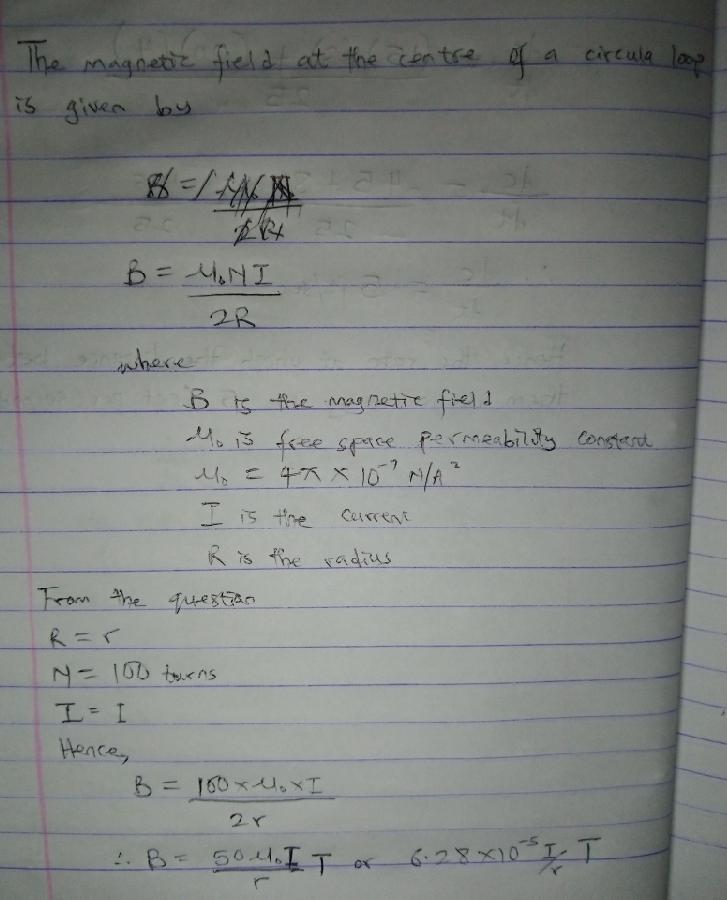 The magnetic field at the centre of a circula loop
is given by
B = μ₀NI
2R
where
B is the magnetic field
μ₀ is free space permeability constant
μ₀ = 4π × 10⁻⁷ N/A²
I is the current
R is the radius
From the question
R = r
N = 100 turns
I = I
Hence,
B = 100 × μ₀ × I
2r
∴ B = 50μ₀I T or 6.28 × 10⁻⁵ I/r T
r